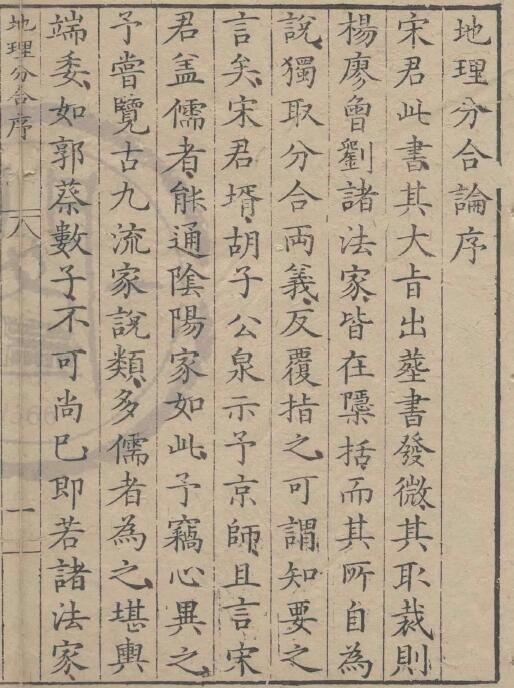 地理分合論序
宋君此書其大旨出塟書發微其取裁則
楊廖曾劉諸法家皆在檃括而其所自為
說獨取分合兩義反覆指之可謂知要之
言矣宋君壻胡子公泉示予京師且言宋
君盖儒者能通陰陽家如此予竊心異之
予嘗覽古九流家說類多儒者為之堪輿
端委如郭蔡數子不可尚已即若諸法家
地理分合序
八
一